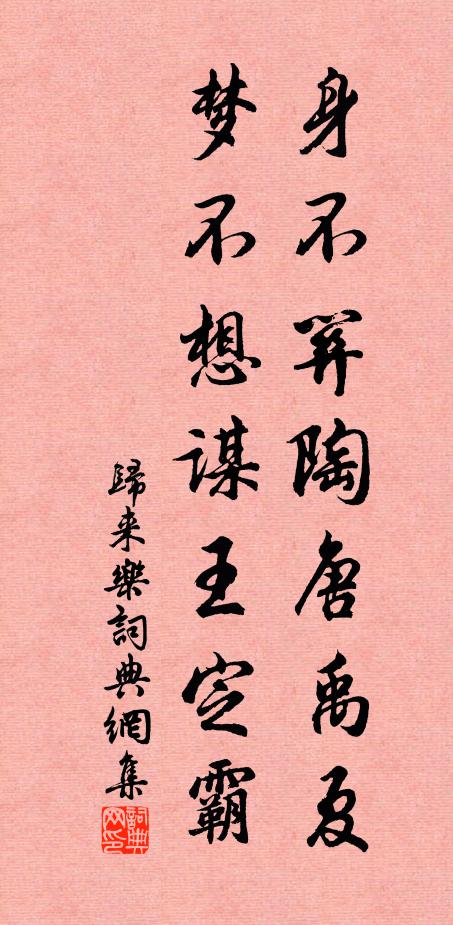 身不筭陶唐禹夏
梦不想谋王定霸
歸来樂詞典網集
詞典网印